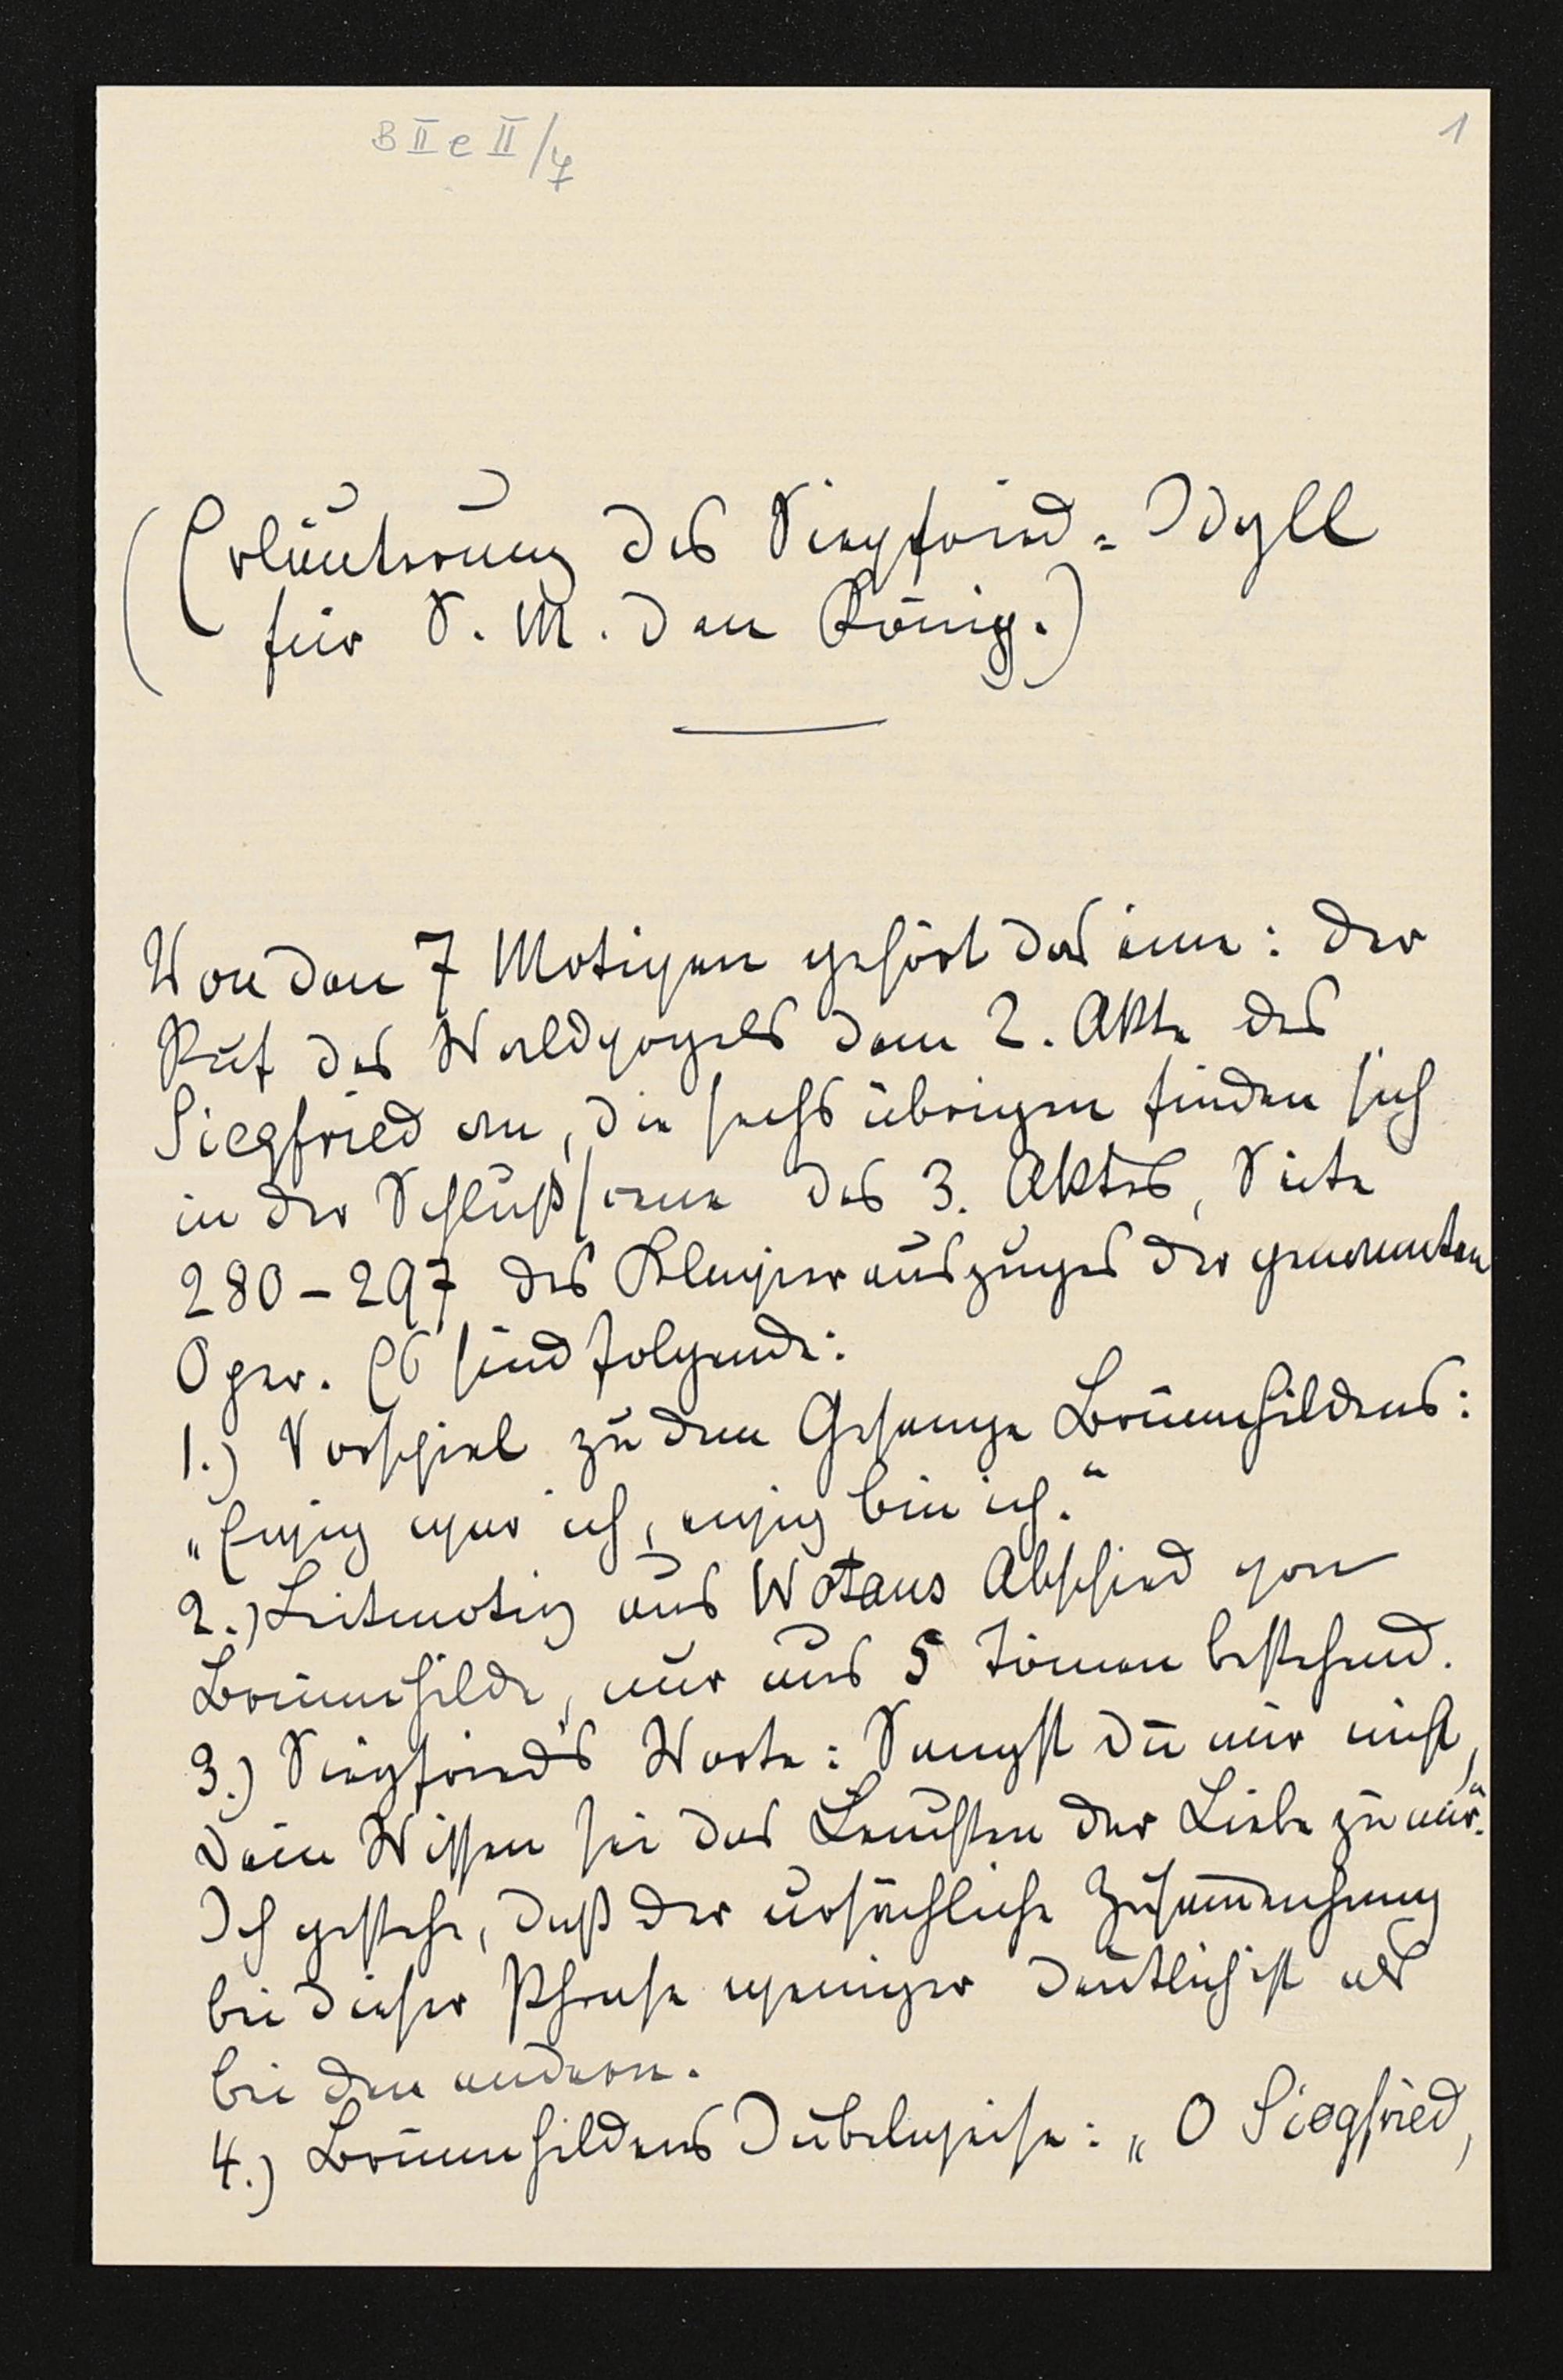 B II e II/7
1
(Erläuterung des Siegfried-Idyll
für S. M. den König.)
Von den 7 Motiven gehört das eine: der
Ruf des Waldvogels dem 2. Akte des
Siegfried an, die sechs übrigen finden sich
in der Schlußscene des 3. Aktes, Seite
280–297 des Klavierauszuges der genannten
Oper. Es sind folgende:
1.) Vorspiel zu dem Gesange Brünnhildens:
„Ewig war ich, ewig bin ich.“
2.) Leitmotiv aus Wotans Abschied von
Brünnhilde, nur aus 5 Tönen bestehend.
3.) Siegfried's Worte: Sangst Du mir nicht,
Dein Wissen sei das Leuchten der Liebe zu mir.“
Ich gestehe, daß der ursächliche Zusam̅enhang
bei dieser Phrase weniger deutlich ist als
bei den andern.
4.) Brünnhildens Jubelweise: „O Siegfried,